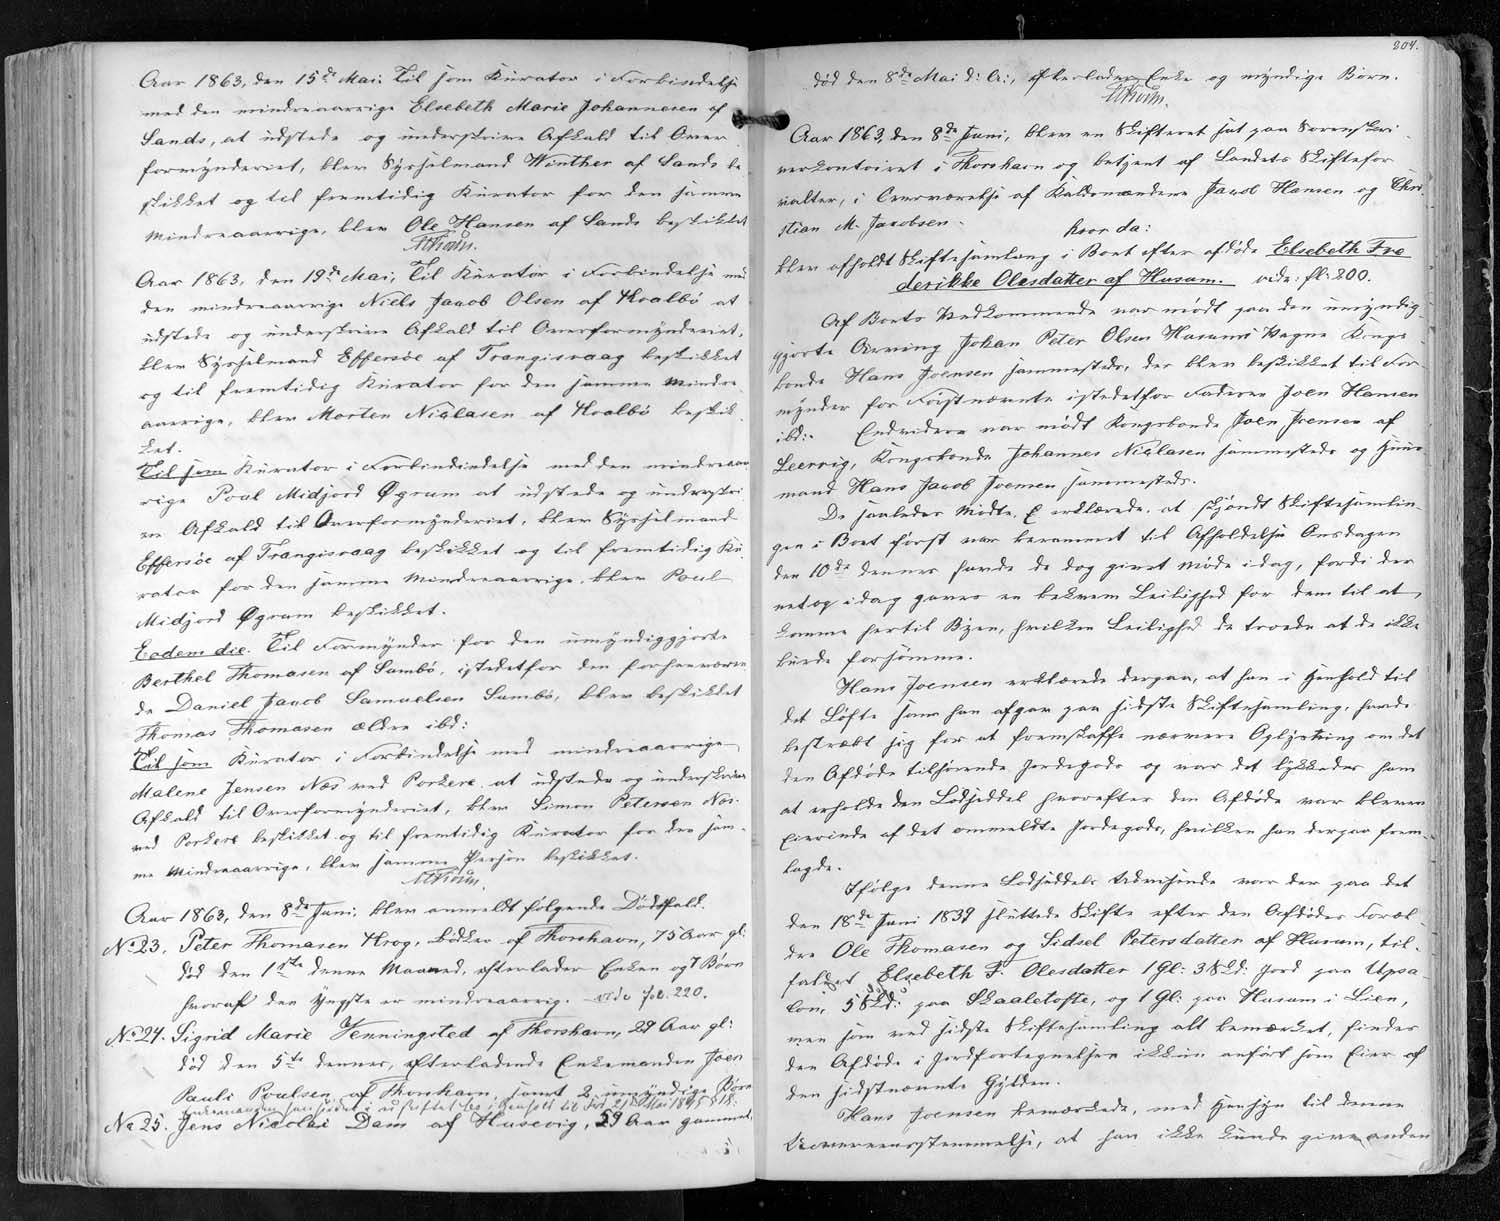 Aar 1863, den 15de Mai; Til som Kurator i Forbindelse
med den mindreaarige Elsebeth Marie Johannesen af
Sands, at udstede og underskrive Afkald til Over-
formynderiet, blev Sysselmand Winther af Sands be-
skikket og til fremtidig Kurator for den samme
Mindreaarige, blev Ole Hansen af Sands beskikket
Aar 1863, den 19de Mai; Til Kurator i Forbindelse med
den mindreaarige Niels Jacob Olsen af Hvalbö at
udstede og underskrive Afkald til Overformynderiet,
blev Sysselmand Effersöe af Trangisvaag beskikket
og til fremtidig Kurator for den samme Mindre-
aarige, blev Morten Niclasen af Hvalbö beskik-
ket.
Til som Kurator i Forbindindelse med den mindreaa-
rige Poul Midjord Øgrum at udstede og underskri-
ve Afkald til Overformynderiet, blev Sysselmand
Effersöe af Trangisvaag beskikket og til fremtidig Ku-
rator for den samme Mindreaarige, blev Poul
Midjord Øgrum beskikket.
Eodem die. Til Formynder for den umyndiggjorte
Berthel Thomasen af Sumbö, istedetfor den forhenværen-
de Daniel Jacob Samuelsen Sumbö, blev beskikket
Thomas Thomasen ældre ibd:
Til som Kurator i Forbindelse med mindreaarige
Malene Jensen Næs ved Porkere at udstede og underskrive
Afkald til Overformynderiet, blev Simon Petersen Næs
ved Porkere beskikket og til fremtidig Kurator for den sam-
me Mindreaarige, blev samme Person beskikket.
Aar 1863, den 8de Juni; blev anmeldt følgende Dödsfald.
No 23. Peter Thomasen Krog, Bödker af Thorshavn, 75 Aar gl:
död den 1ste denne Maaned, efterlader Enken og 7 Børn
hvoraf den Yngste er mindreaarig. vide fol. 220.
No 24. Sigrid Marie Venningsted af Thorshavn, 29 Aar gl:
död den 5te dennes, efterladende Enkemanden Joen
Pauli Poulsen af Thorshavn samt 2 umyndige Børn
No 25. Jens Nicolai Dam af Husevig, 59 Aar gammel,
204.
död den 8de Mai d: A:, efterlader Enke og myndige Børn.
Aar 1863, den 8de Juni, blev en Skifteret sat paa Sorenskri-
verkontoiret i Thorshavn og betjent af Landets Skiftefor-
valter, i Overværelse af Kaldsmændene Jacob Hansen og Chri-
stian M. Jacobsen.
hvor da:
blev afholdt Skiftesamling i Boet efter afdøde Elsebeth Fre
derikke Olesdatter af Husum. vide: fl: 200.
Af Boets Vedkommende var mödt paa den umyndig-
gjorte Arving Johan Peter Olsen Husums Vegne Kongs-
bonde Hans Joensen sammesteds, der blev beskikket til For-
mynder for Förstnævnte istedetfor Faderen Joen Hansen
ibd:. Endvidere var mödt Kongsbonde Joen Joensen af
Leervig, Kongsbonde Johannes Niclasen sammesteds og Huus-
mand Hans Jacob Joensen sammesteds.
De saaledes Mödte erklærede, at skjöndt Skiftesamlin-
gen i Boet först var berammet til Afholdelse Onsdagen
den 10de dennes havde de dog givet Møde idag, fordi der
netop idag gaves en bekvem Leilighed for dem til at
komme hertil Byen, hvilken Leilighed de troede at de ikke
burde forsömme.
Hans Joensen erklærede derpaa, at han i Henhold til
det Löfte som han afgav paa sidste Skiftesamling, havde
bestræbt sig for at fremskaffe nærmere Oplysning om det
den Afdöde tilhörende Jordegods og var det lykkedes ham
at erholde den Lodseddel hvorefter den Afdöde var bleven
Eierinde af det ommeldte Jordegods, hvilken han derpaa frem-
lagde.
Ifølge denne Lodseddels Udvisende var der paa det
den 18de Juni 1839 sluttede Skifte efter den Afdödes Foræl-
dre Ole Thomasen og Sidsel Petersdatter af Husum, til-
faldet Elsebeth F. Olesdatter 1 Gl: 3 Skd: Jord paa Upsa-
lon, 5 Skd: paa Skaaletofte, og 1 Gl: paa Husum i Lien,
men som ved sidste Skiftesamling alt bemærket, findes
den Afdöde i Jordfortegnelsen ikkun anfört som Eier af
den sidstnævnte Gylden.
Hans Joensen bemærkede, med Hensyn til denne
Uoverensstemmelse, at han ikke kunde give anden